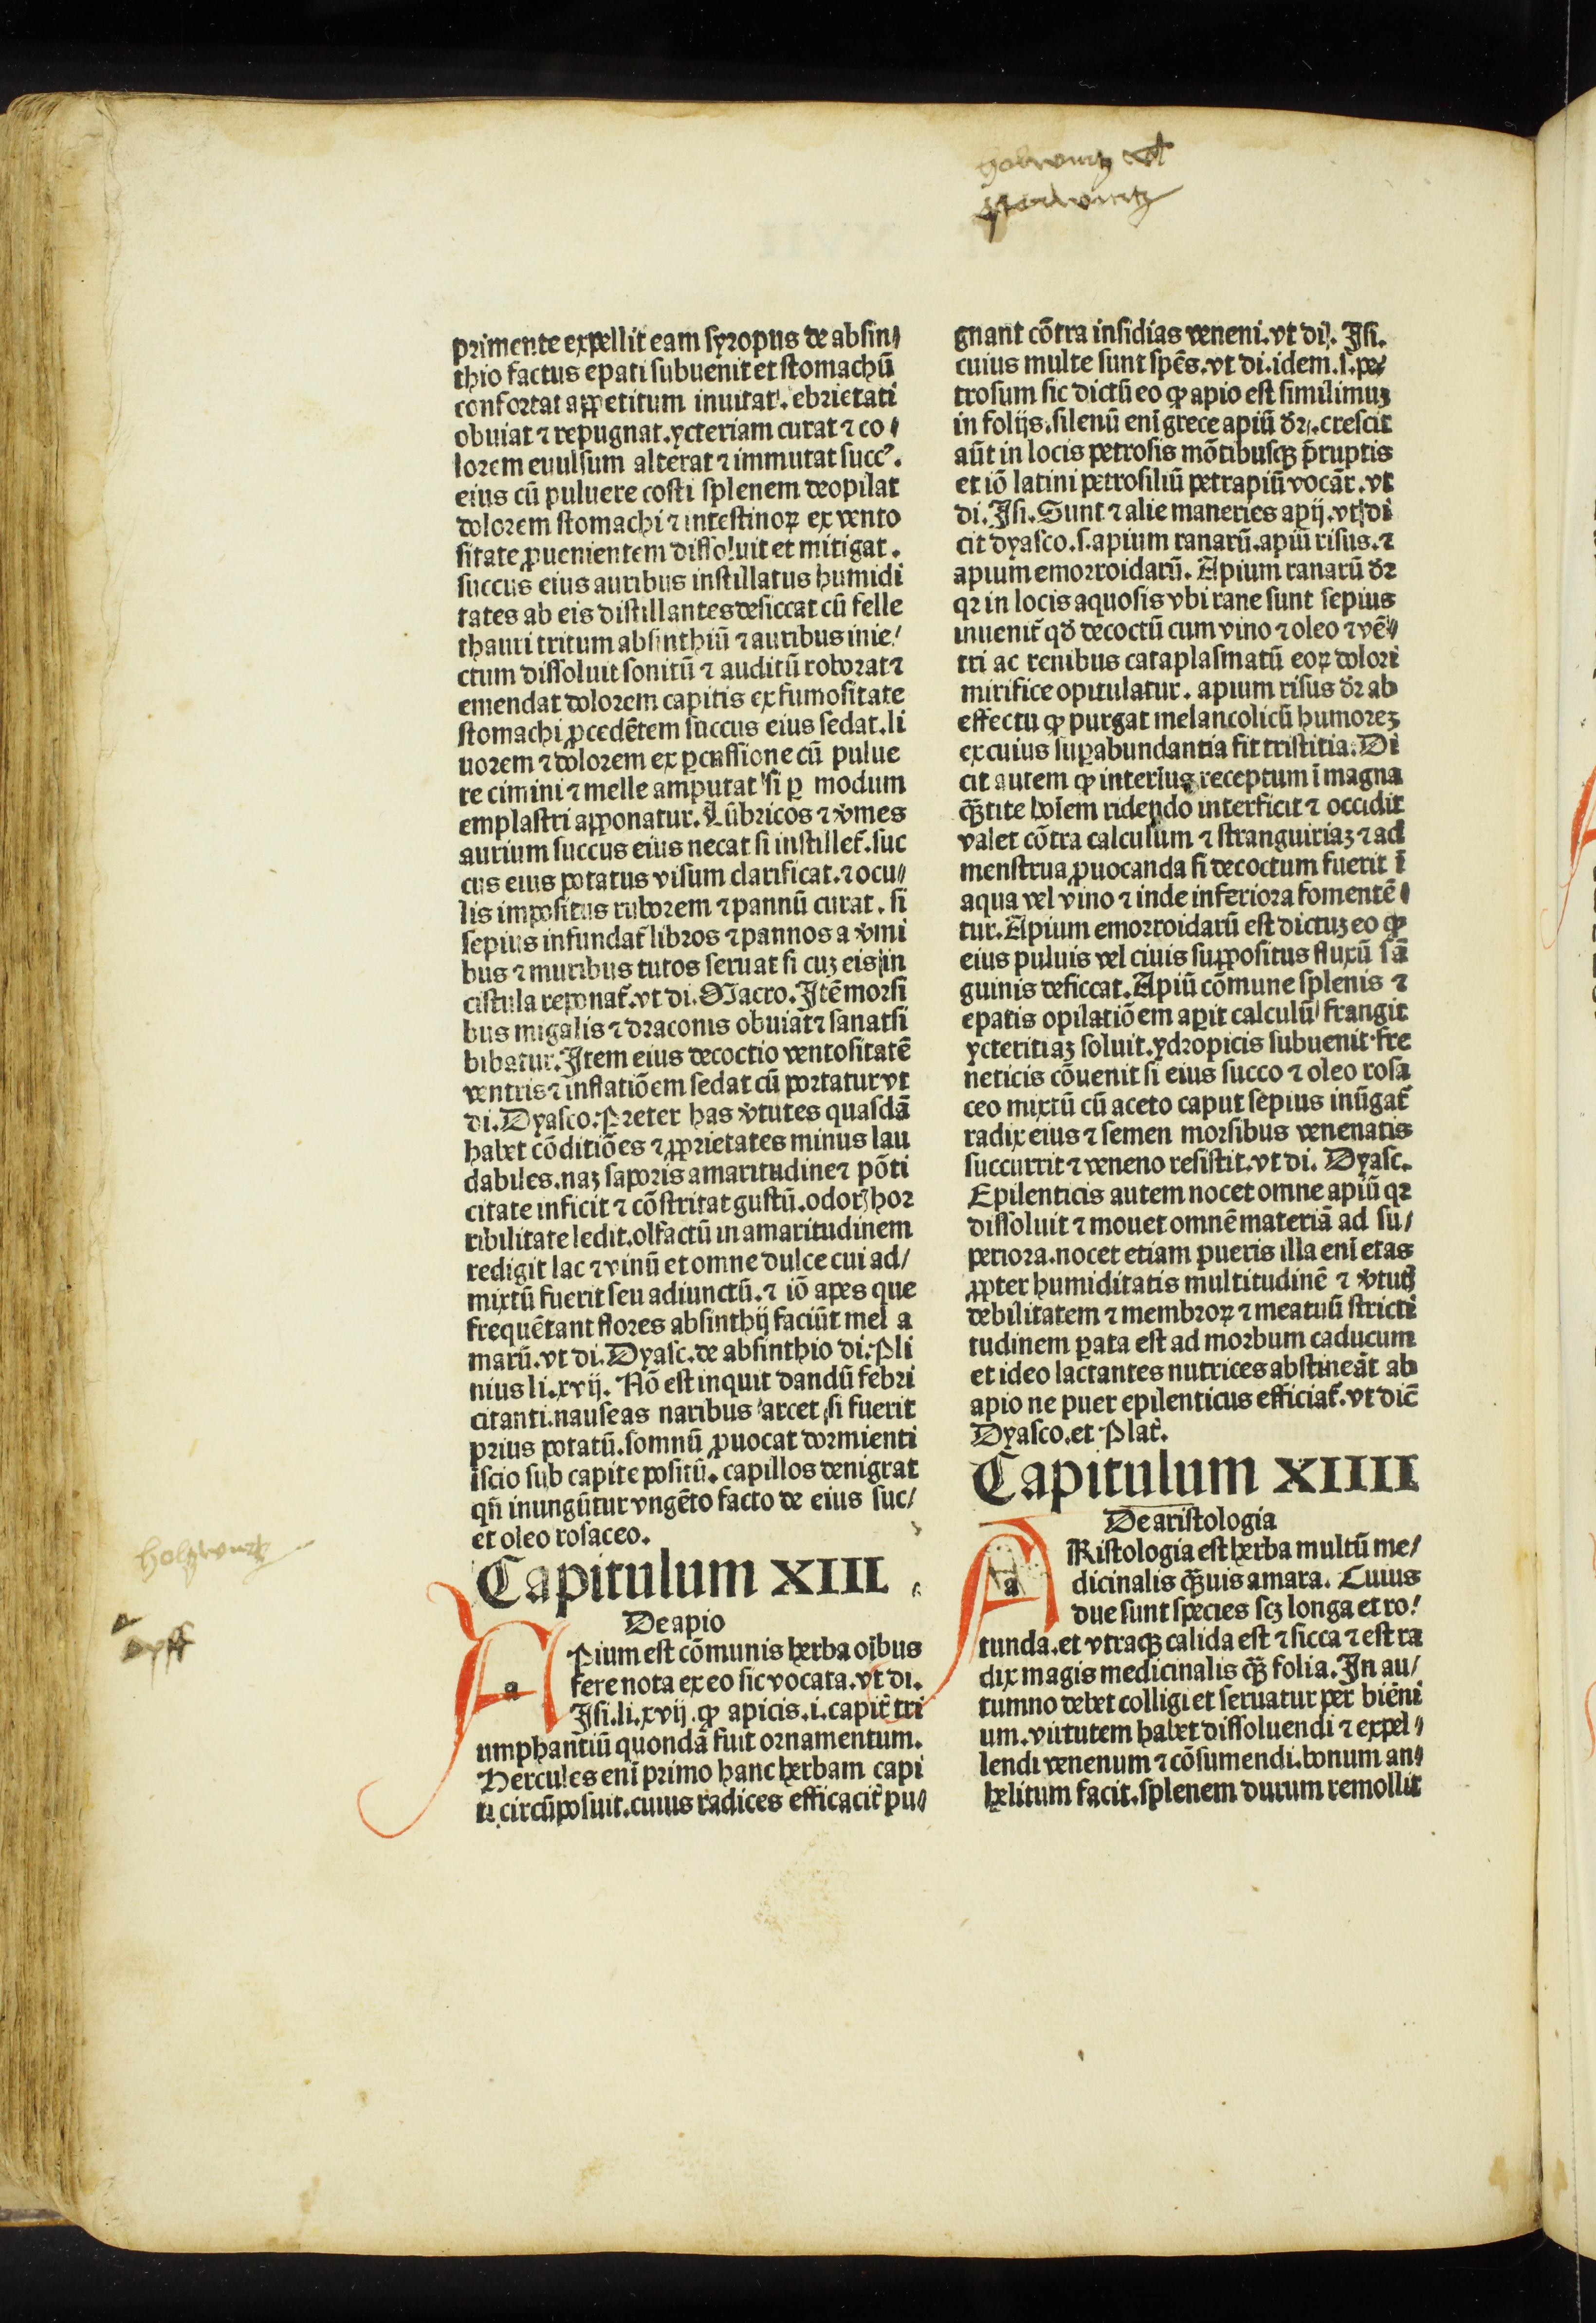 primente expellit eam syropus de absin⸗
thio factus epati subuenit et stomachū
confortat appetitum inuitat. ebrietati
obuiat ⁊ repugnat. ycteriam curat ⁊ co⸗
lorem euulsum alterat ⁊ immutat succꝰ.
eius cū puluere costi splenem deopilat
dolorem stomachi ⁊ intestinoꝝ ex vento
sitate ꝓuenientem dissoluit et mitigat.
succus eius auribus instillatus humidi
tates ab eis distillantes desiccat cū felle
thauri tritum absinthiū ⁊ auribus inie/
ctum dissoluit sonitū ⁊ auditū roborat ⁊
emendat dolorem capitis ex fumositate
stomachi ꝓcedētem succus eius sedat. li
uorem ⁊ dolorem ex ꝑcussione cū pulue
re cimini ⁊ melle amputat si ꝑ modum
emplastri apponatur. Lūbricos ⁊ v̄mes
aurium succus eius necat si instillet̄. suc
cus eius potatus visum clarificat. ⁊ ocu⸗
lis impositus ruborem ⁊ pannū curat. si
sepius infundat̄ libros ⁊ pannos a v̄mi
bus ⁊ muribus tutos seruat si cuꝫ eis in
cistula reponat̄. vt di. Macro. Itē morsi
bus migalis ⁊ draconis obuiat ⁊ sanat si
bibatur. Item eius decoctio ventositatē
ventris ⁊ inflatiōem sedat cū portatur vt
di. Dyasco. Preter has v̄tutes quasdā
habet cōditiōes ⁊ ꝓprietates minus lau
dabiles. naꝫ saporis amaritudine ⁊ pōti
citate inficit ⁊ cōstritat gustū. odorꝭ hor
ribilitate ledit. olfactū in amaritudinem
redigit lac ⁊ vinū et omne dulce cui ad/
mixtū fuerit seu adiunctū. ⁊ iō apes que
frequētant flores absinthij faciūt mel a
marū. vt di. Dyasc. de absinthio di. Pli
nius li. xvij. Nō est inquit dandū febri
citanti. nauseas naribus arcet si fuerit
prius potatū. somnū ꝓuocat dormienti
iscio sub capite positū. capillos denigrat
qn̄ inungūtur vngēto facto de eius suc/
et oleo rosaceo.
Capitulum XIII
De apio
a Pium est cōmunis herba oībus
fere nota ex eo sic vocata. vt di.
Isi. li. xvij. ꝙ apicis. i. capit̄ tri
umphantiū quondā fuit ornamentum.
Hercules enī primo hanc herbam capi
ti circūposuit. cuius radices efficacit̄ pu⸗
holwurtz vl
gnant cōtra insidias veneni. vt di. Isi.
cuius multe sunt spēs. vt di. idem. s. pe⸗
trosum sic dictū eo ꝙ apio est similimuꝫ
in folijs. silenū enī grece apiū dr̄. crescit
aūt in locis petrosis mōtibusqꝫ p̄ruptis
et iō latini petrosiliū petrapiū vocāt. vt
di. Isi. Sunt ⁊ alie maneries apij. vt di
cit dyasco. s. apium ranarū. apiū risus. ⁊
apium emorroidarū. Apium ranarū dr̄
qꝛ in locis aquosis vbi rane sunt sepius
inuenit̄ qd̄ decoctū cum vino ⁊ oleo ⁊ vē⸗
tri ac renibus cataplasmatū eoꝝ dolori
mirifice opitulatur. apium risus dr̄ ab
effectu ꝙ purgat melancolicū humoreꝫ
ex cuius suꝑabundantia fit tristitia. Di
cit autem ꝙ interius receptum ī magna
q̄ꝫtite hoīem ridendo interficit ⁊ occidit
valet cōtra calculum ⁊ stranguiriaꝫ ⁊ ad
menstrua ꝓuocanda si decoctum fuerit ī
aqua vel vino ⁊ inde inferiora fomentē⸗
tur. Apium emorroidarū est dictuꝫ eo ꝙ
eius puluis vel ciuis suppositus fluxū sā
guinis desiccat. Apiū cōmune splenis ⁊
epatis opilatiōem aꝑit calculū frangit
ycteritiaꝫ soluit. ydropicis subuenit. fre
neticis cōuenit si eius succo ⁊ oleo rosa
ceo mixtū cū aceto caput sepius inūgat̄
radix eius ⁊ semen morsibus venenatis
succurrit ⁊ veneno resistit. vt di. Dyasc.
Epilenticis autem nocet omne apiū qꝛ
dissoluit ⁊ mouet omnē materiā ad su/
periora. nocet etiam pueris illa enī etas
ꝓpter humiditatis multitudinē ⁊ v̄tutꝭ
debilitatem ⁊ membroꝝ ⁊ meatuū stricti
tudinem ꝑata est ad morbum caducum
et ideo lactantes nutrices abstineāt ab
apio ne puer epilenticus efficiat̄. vt dic̄
Dyasco. et Plat̄.
Capitulum XIIII
De aristologia
a Ristologia est herba multū me/
dicinalis q̄ꝫuis amara. Cuius
due sunt species scꝫ longa et ro/
tunda. et vtraqꝫ calida est ⁊ sicca ⁊ est ra
dix magis medicinalis q̄ꝫ folia. In au/
tumno debet colligi et seruatur per biēni
um. virtutem habet dissoluendi ⁊ expel⸗
lendi venenum ⁊ cōsumendi. bonum an⸗
helitum facit. splenem durum remollit